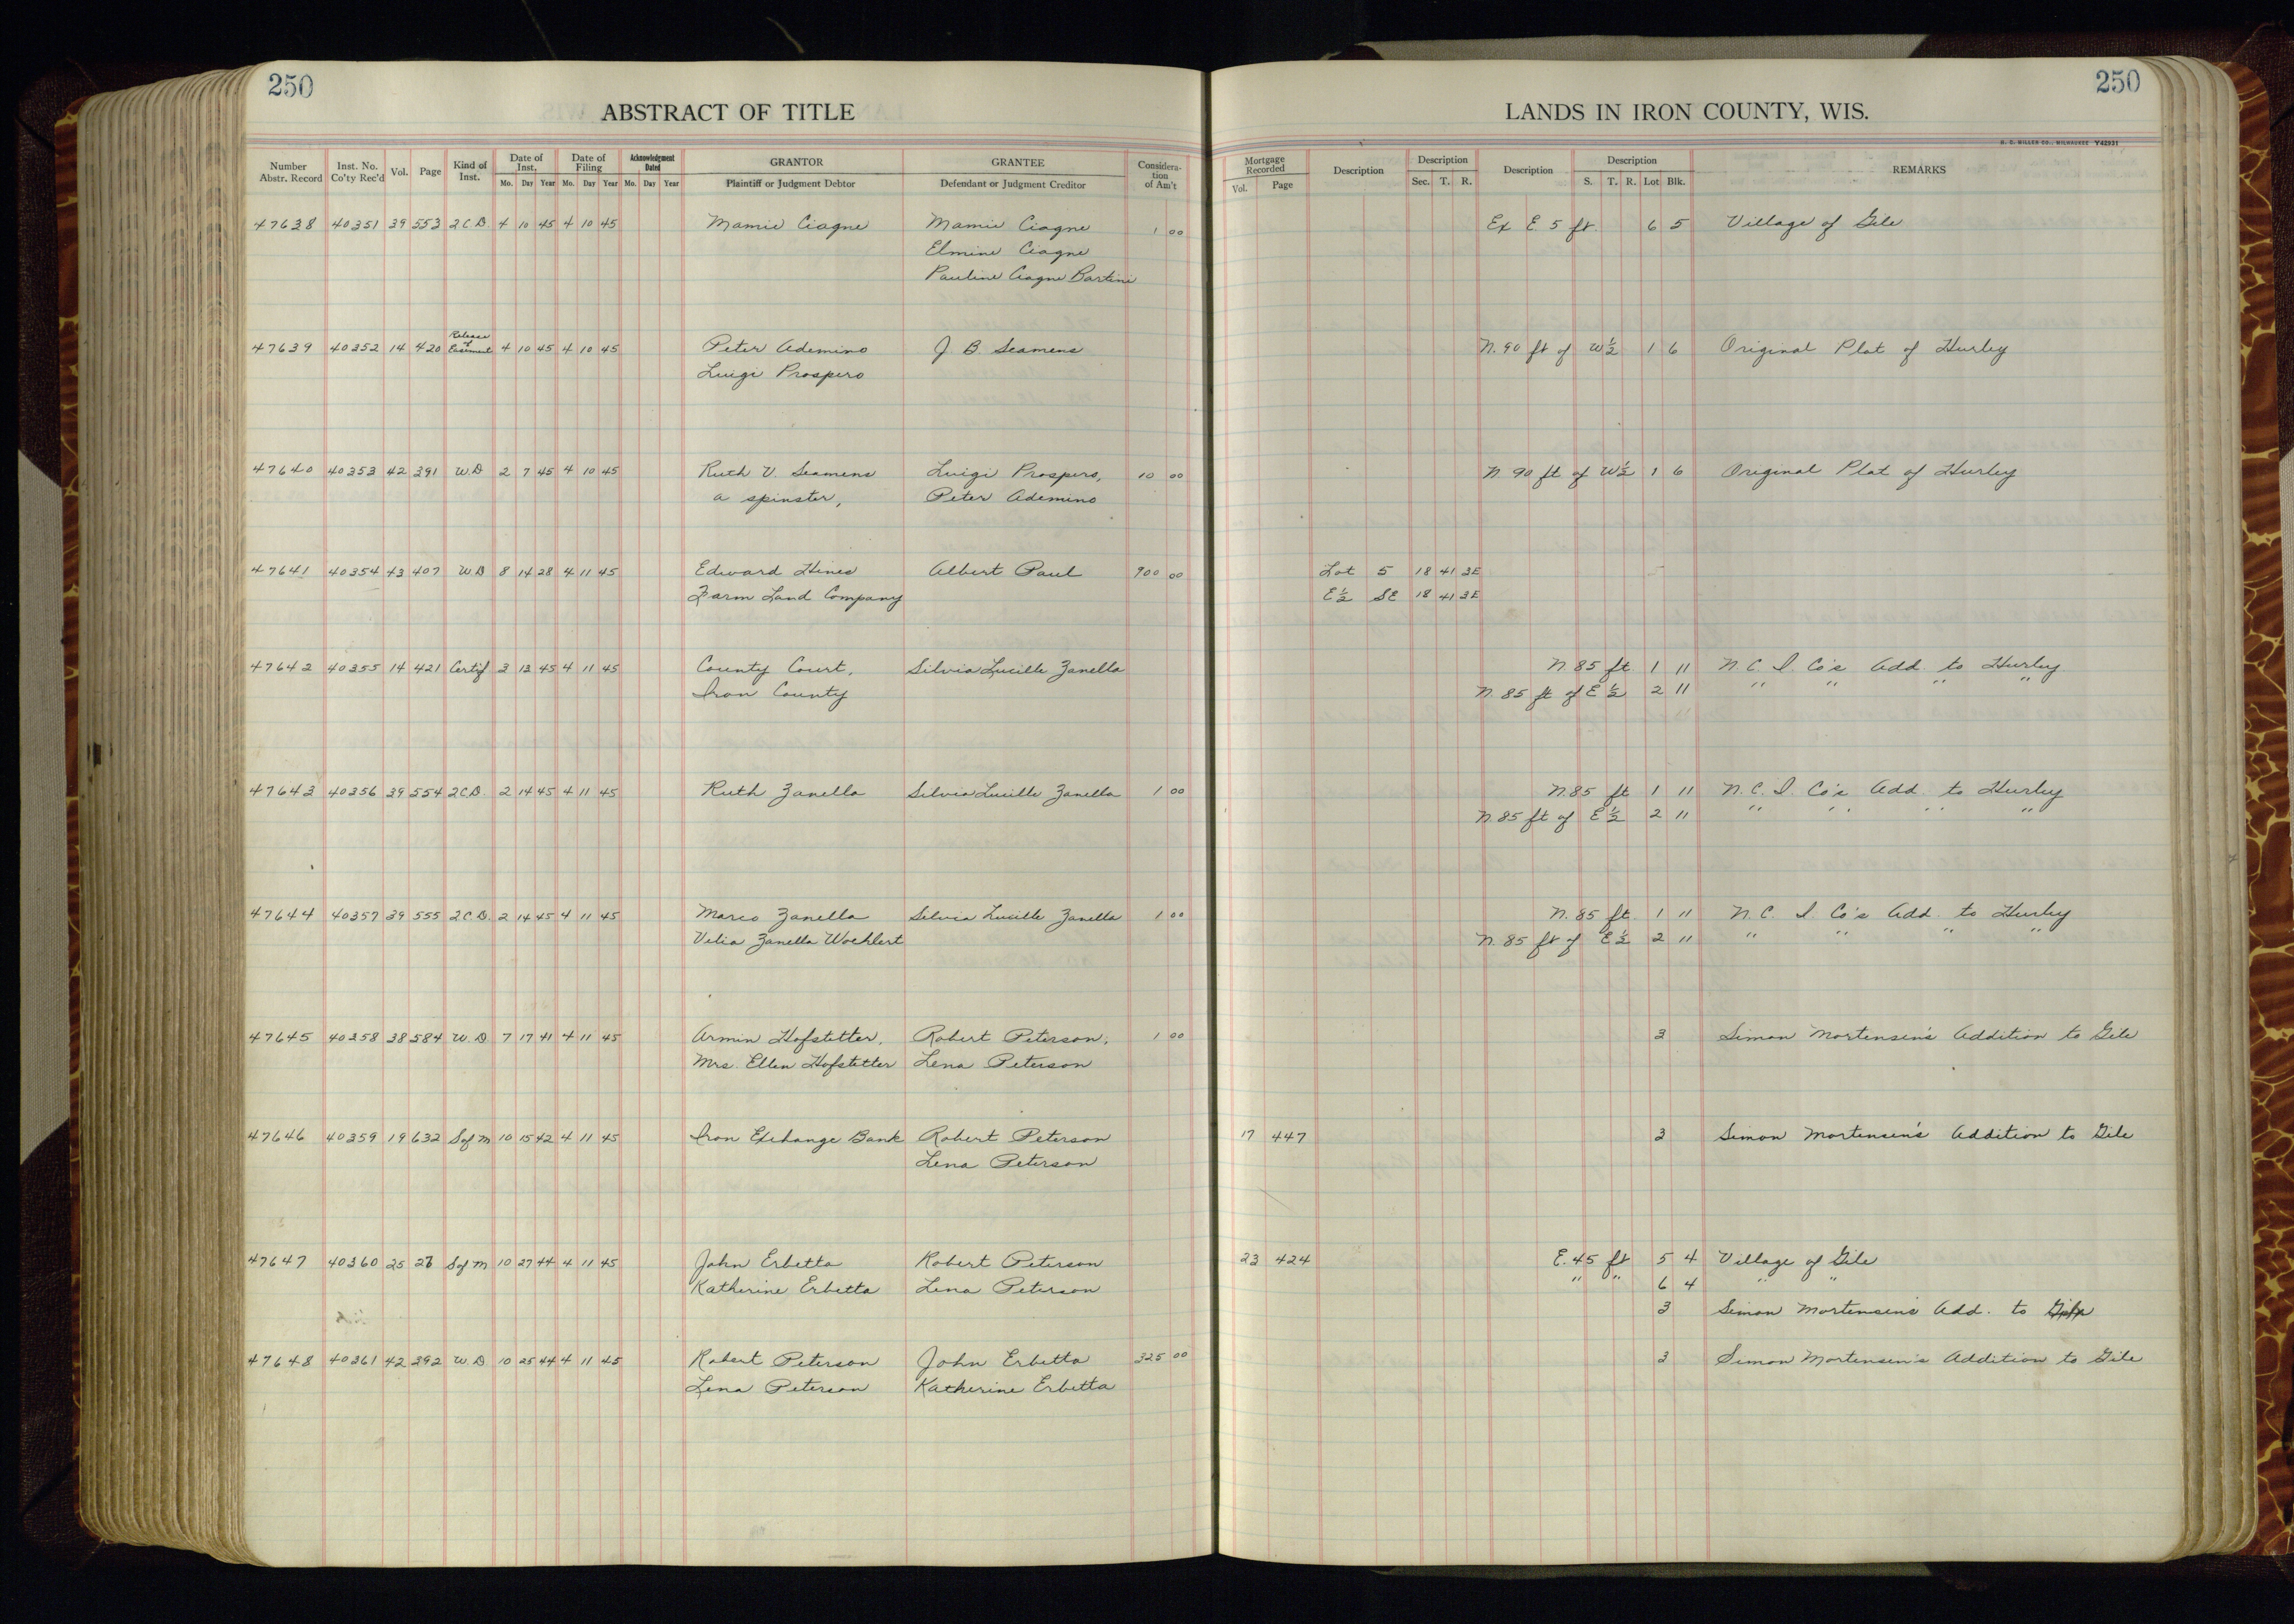 250
ABSTRACT OF TITLE
LANDS IN IRON COUNTY, WIS.
250
H. C. MILLER CO., MILWAUKEE Y42931
Number Abstr. Record
Inst. No. Co'ty Rec'd
Vol.
Page
Kind of Inst.
Date of Inst. Mo. Day Year
Date of Filing Mo. Day Year
Acknowledgment Dated Mo. Day Year
GRANTOR Plaintiff or Judgment Debtor
GRANTEE Defendant or Judgment Creditor
Consideration of Am't
Mortgage Recorded Vol. Page
Description
Description Sec. T. R.
Description
Description S. T. R. Lot Blk.
REMARKS
47638 40351 39 553 2CD 4 10 45 4 10 45 Mamie Ciagne Mamie Ciagne 1 00 Ex E. 5 ft. 6 5 Village of Gile
Elmine Ciagne
Pauline Ciagne Bartini
47639 40352 14 420 Release of Easement 4 10 45 4 10 45 Peter Ademino J. B. Seamens N. 90 ft of W½ 1 6 Original Plat of Hurley
Luigi Prospero
47640 40353 42 391 W.D 2 7 45 4 10 45 Ruth V. Seamens Luigi Prospero, 10 00 N 90 ft of W½ 1 6 Original Plat of Hurley
a spinster, Peter Ademino
47641 40354 43 407 W.D 8 14 28 4 11 45 Edward Hines Albert Paul 900 00 Lot 5 18 41 3E
Farm Land Company E½ SE 18 41 3E
47642 40355 14 421 Certif 3 13 45 4 11 45 County Court, Silvia Lucille Zanella N. 85 ft 1 11 N. C. I. Co's Add. to Hurley
Iron County N. 85 ft of E½ 2 11 " " " "
47643 40356 39 554 2CD. 2 14 45 4 11 45 Ruth Zanella Silvia Lucille Zanella 1 00 N. 85 ft 1 11 N. C. I. Co's Add. to Hurley
N. 85 ft of E½ 2 11 " " " "
47644 40357 39 555 2CD. 2 14 45 4 11 45 Marco Zanella Silvia Lucille Zanella 1 00 N. 85 ft. 1 11 N. C. I. Co's Add. to Hurley
Velia Zanella Woehlert N. 85 ft of E½ 2 11 " " " "
47645 40358 38 584 W.D 7 17 41 4 11 45 Armin Hofstetter, Robert Peterson, 1 00 3 Simon Mortensen's Addition to Gile
Mrs. Ellen Hofstetter Lena Peterson
47646 40359 19 632 S of M 10 15 42 4 11 45 Iron Exchange Bank Robert Peterson 17 447 3 Simon Mortensen's Addition to Gile
Lena Peterson
47647 40360 25 S of M 10 27 44 4 11 45 John Erbetta Robert Peterson 23 424 E. 45 ft 5 4 Village of Gile
Katherine Erbetta Lena Peterson " " 6 4 " "
3 Simon Mortensen's Add. to Gile
47648 40361 42 392 W.D 10 25 44 4 11 45 Robert Peterson John Erbetta 325 00 3 Simon Mortensen's Addition to Gile
Lena Peterson Katherine Erbetta